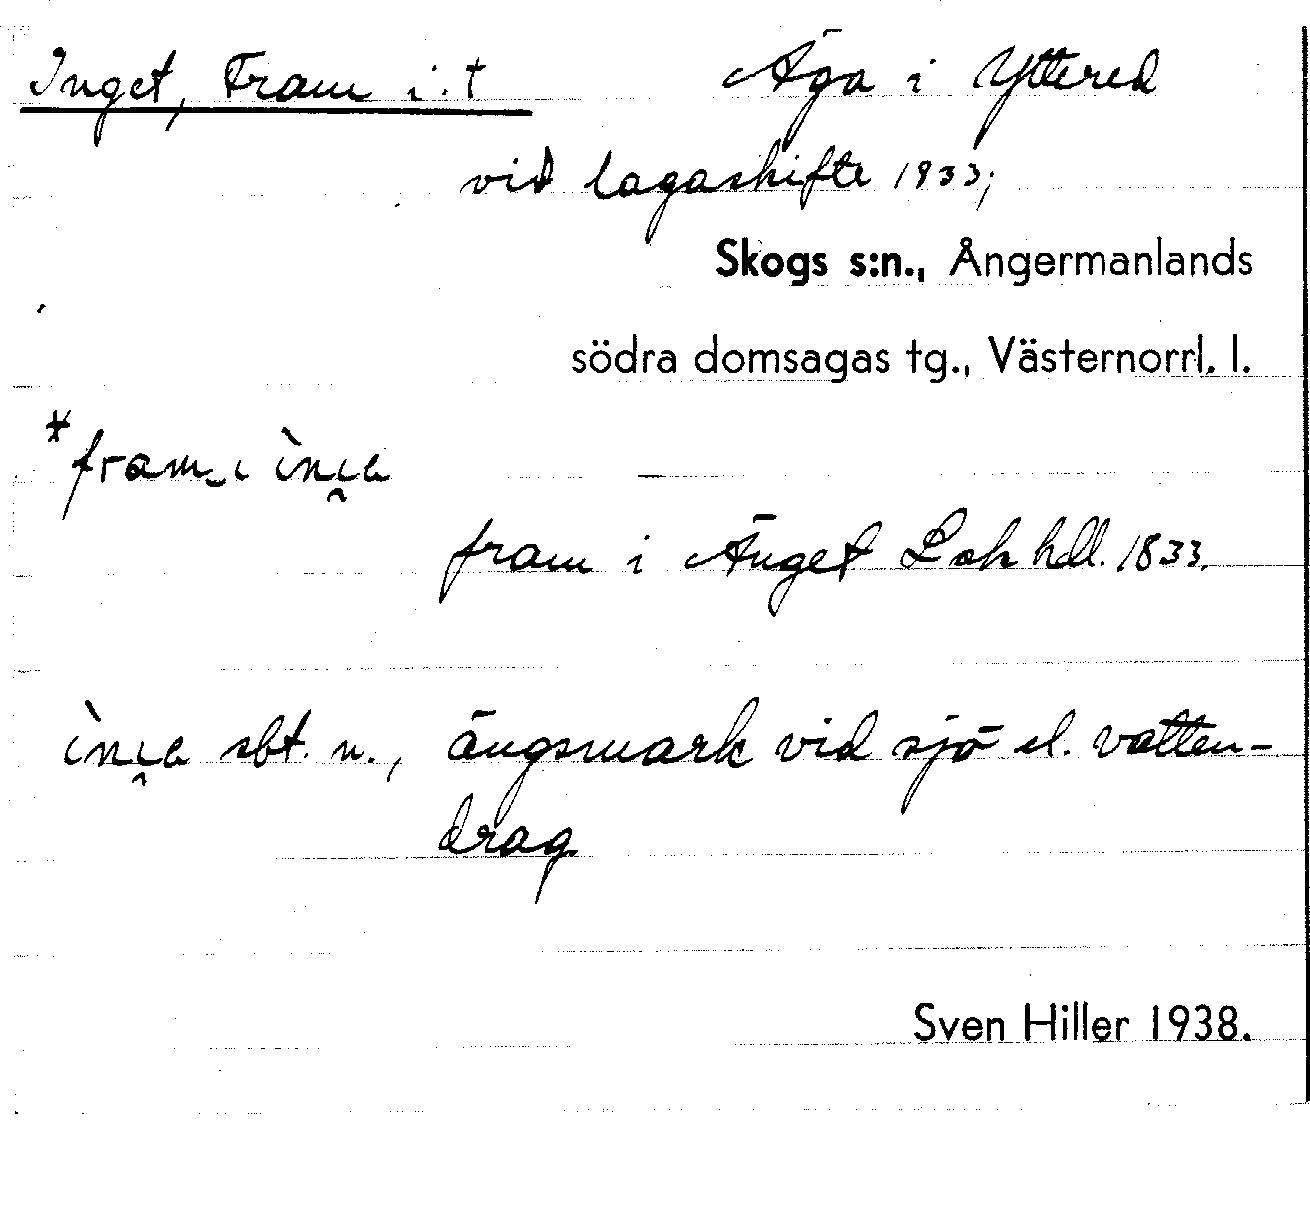 Inget, Fram i. t Äga i Yttered
vid lagaskifte 1933;
Skogs s:n., Ångermanlands
södra domsagas tg., Västernorrl. l.
*fram i
fram i Änget Lsk hdl. 1833.
sbt. n., ängsmark vid sjö el. vatten-
drag
Sven Hiller 1938.